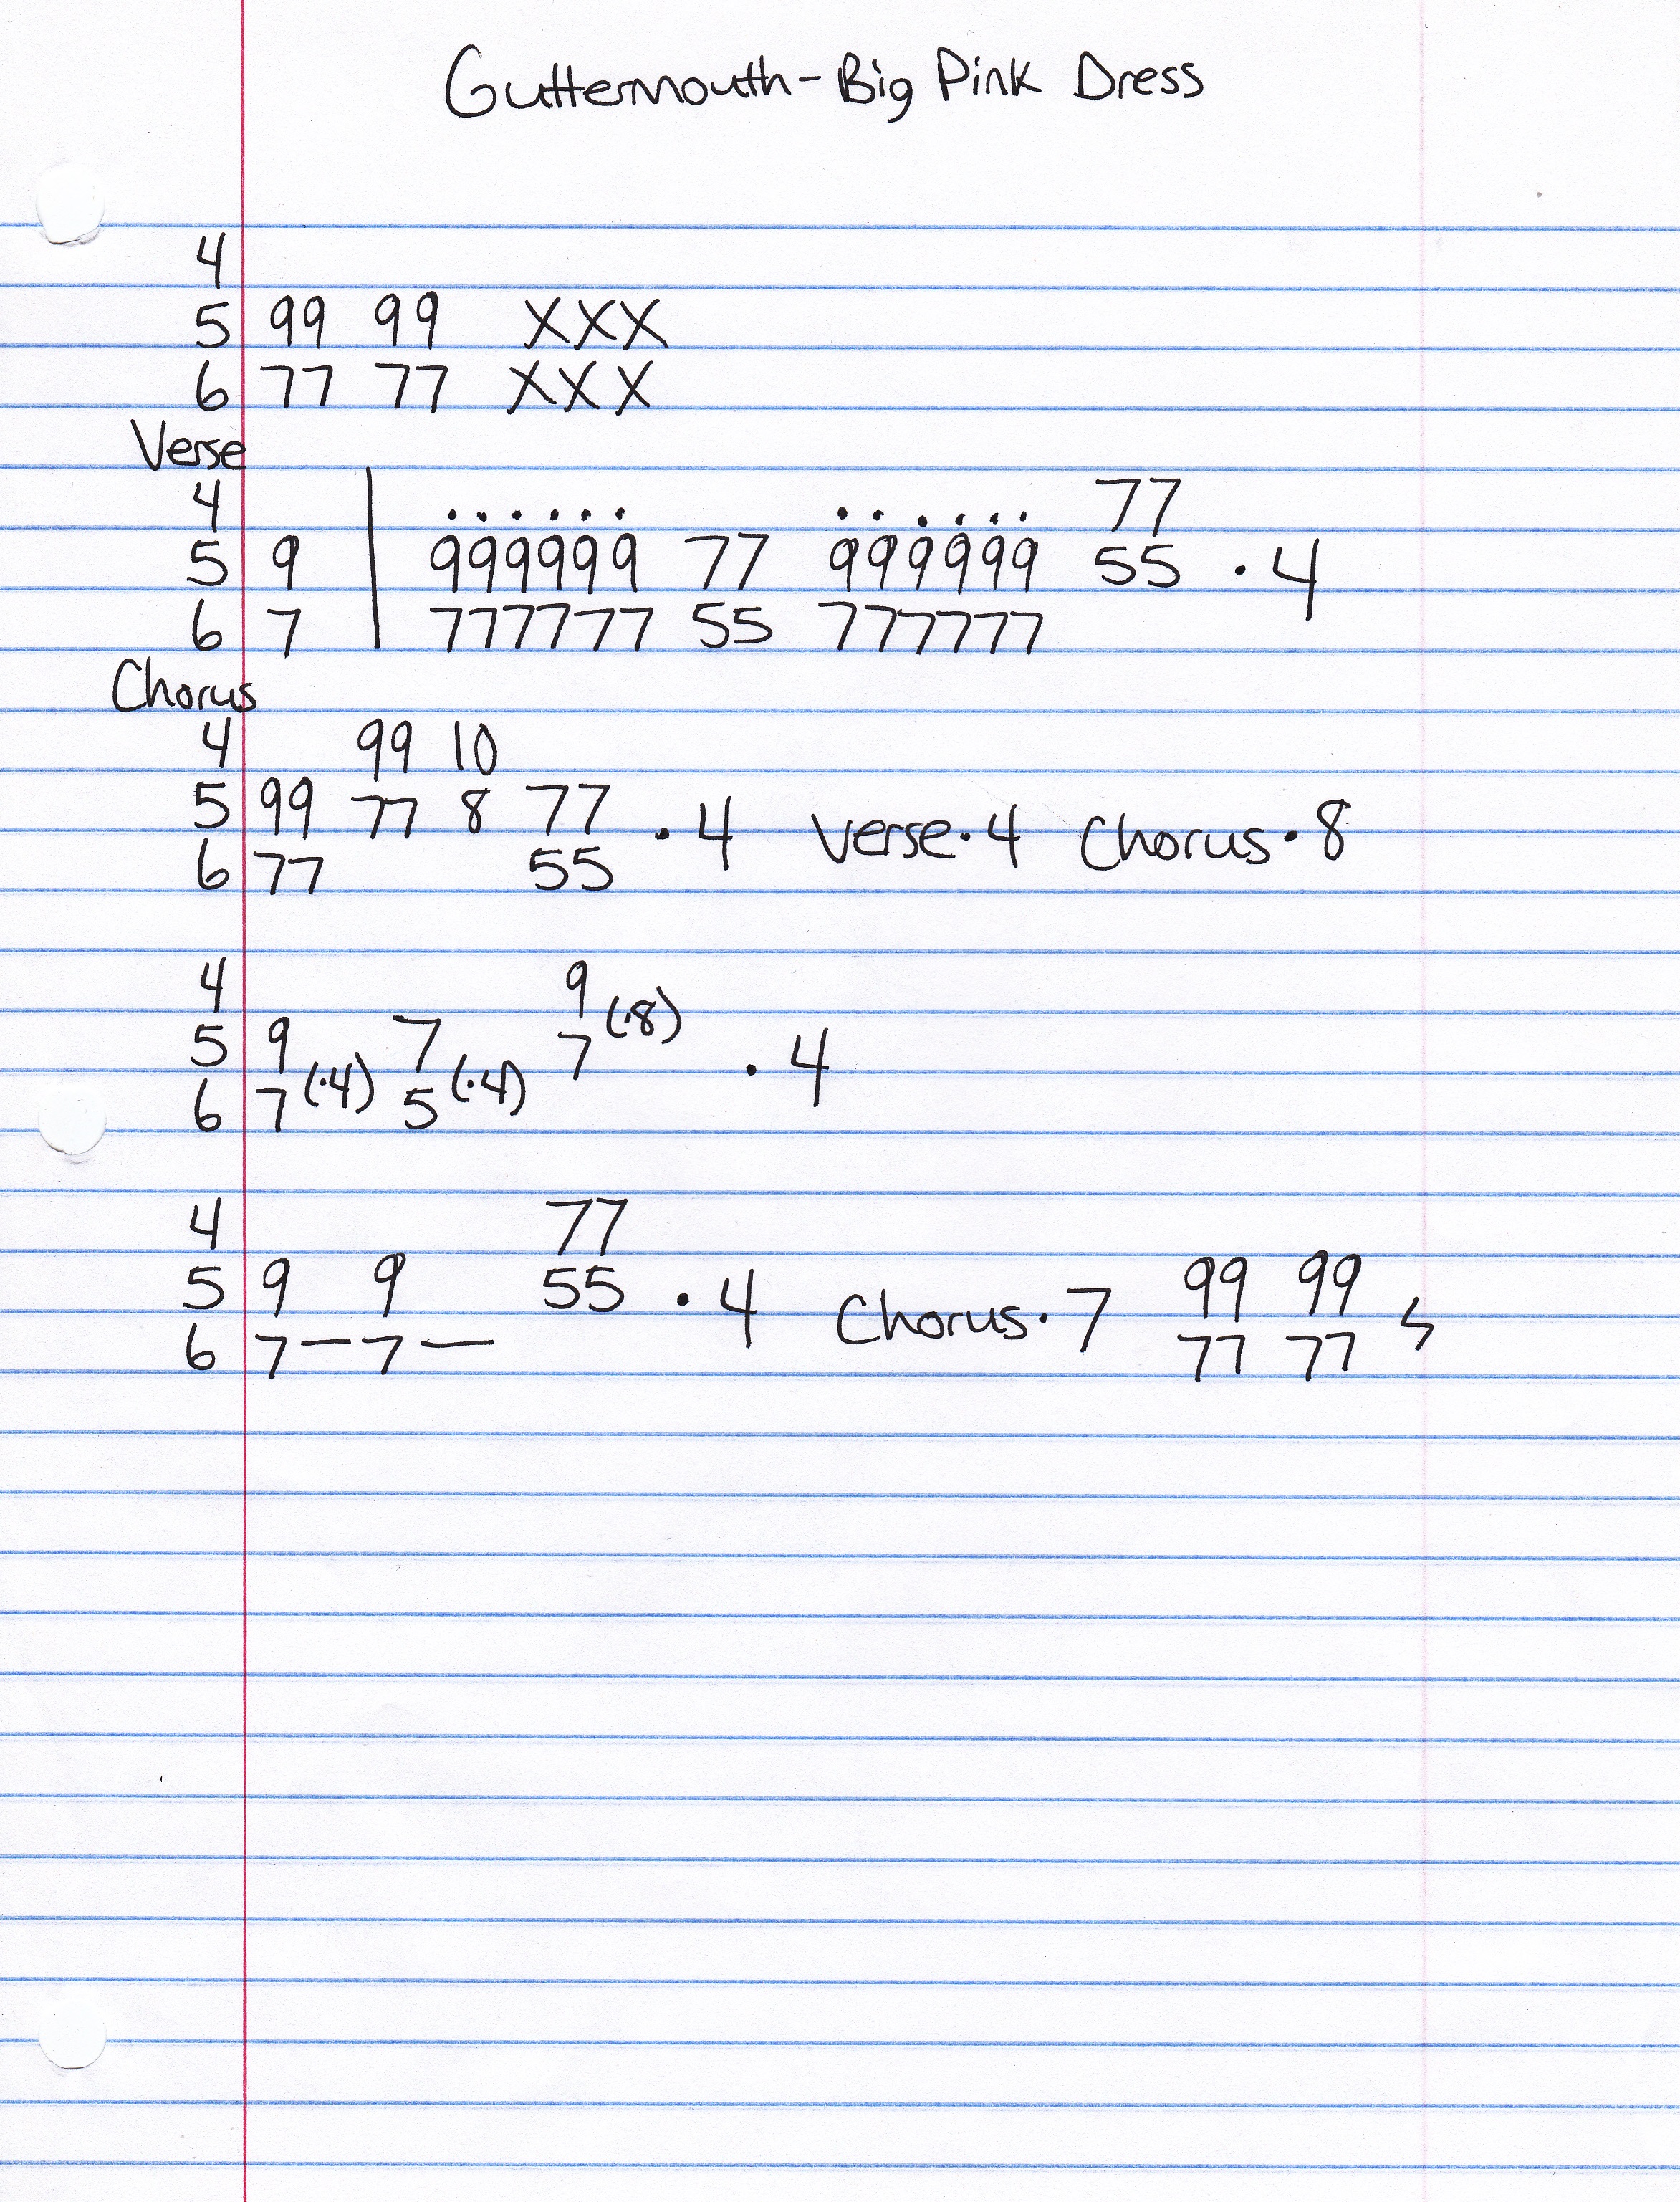 Guttermouth - Big Pink Dress
4
5 99 99 XXX
6 77 77 XXX
Verse
4 ...... ...... 77
5 9 | 999999 77 999999 55 · 4
6 7 | 777777 55 777777
Chorus
4 99 10
5 99 77 8 77 · 4 Verse · 4 Chorus · 8
6 77 55
4 9 (·8)
5 9 7 7 · 4
6 7 (·4) 5 (·4)
4 77
5 9 9 55 · 4 Chorus · 7 99 99
6 7 — 7 — 77 77